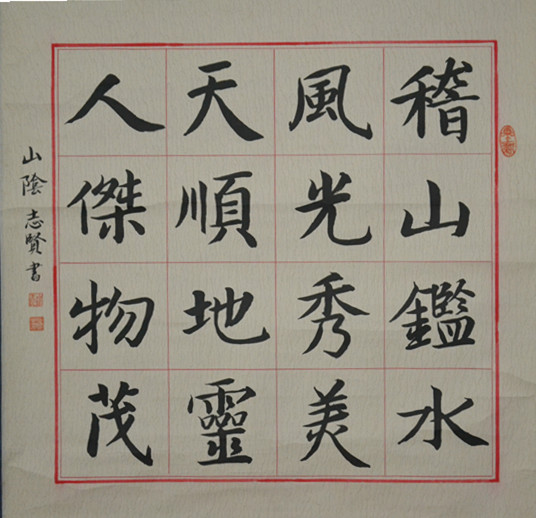 稽山鑑水
風光秀美
天順地靈
人傑物茂
山陰志賢書